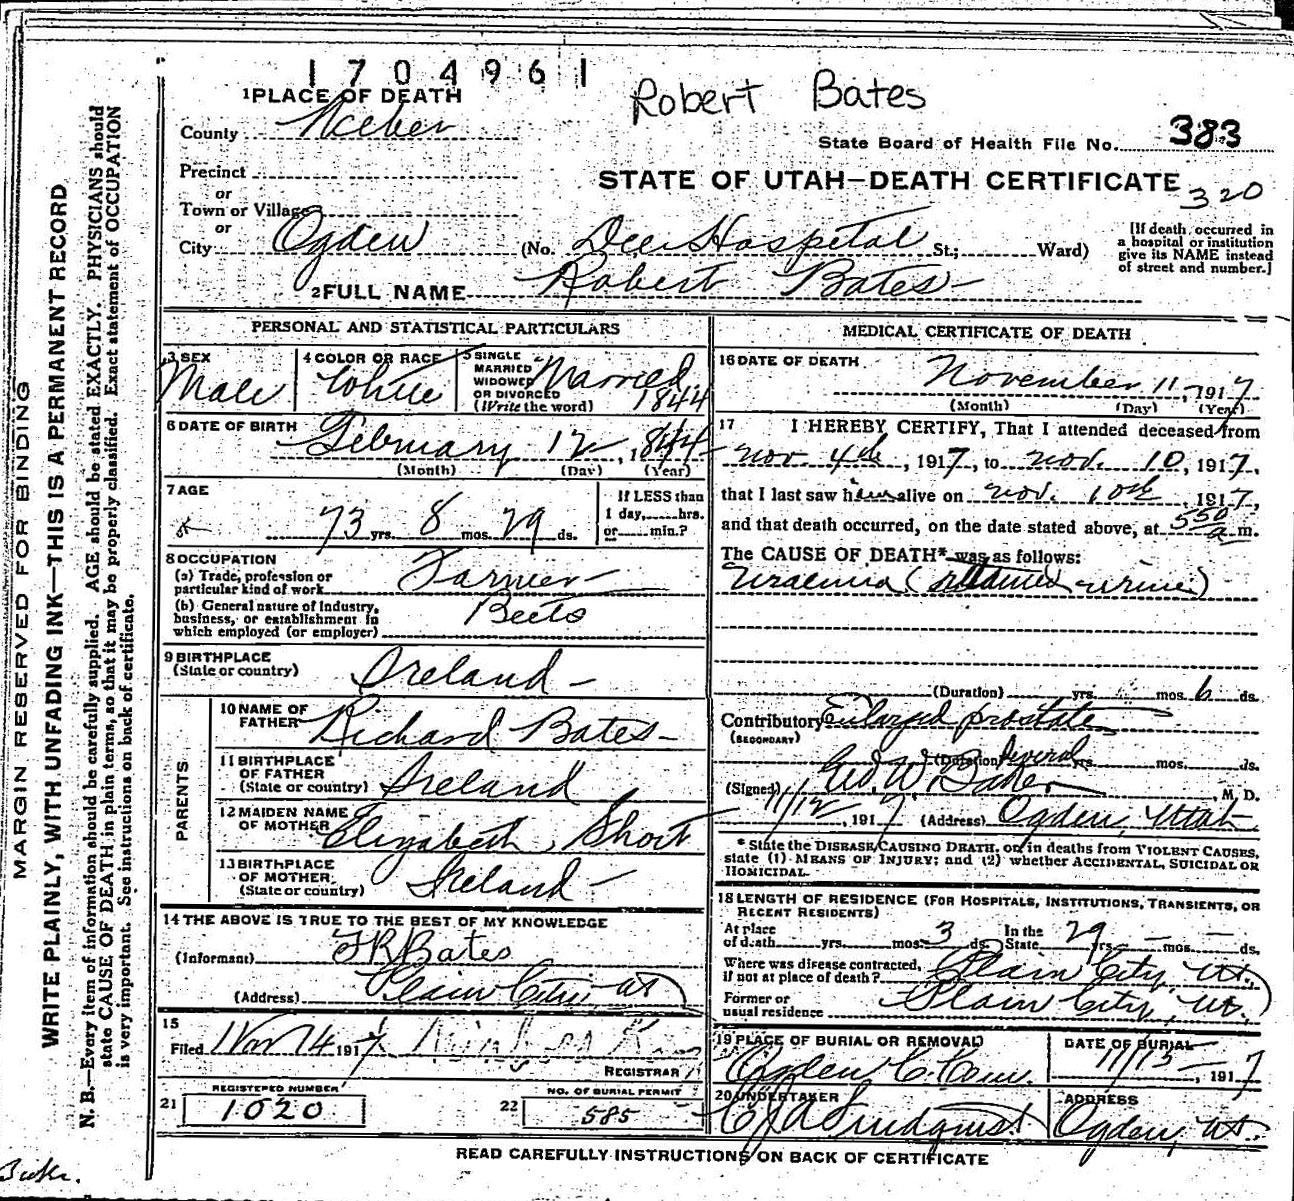 1704961
Robert Bates
1 PLACE OF DEATH
County Weber
State Board of Health File No. 383
Precinct
STATE OF UTAH—DEATH CERTIFICATE
320
or
Town or Village
or
City Ogden (No. Dee Hospital St.; Ward)
[If death occurred in
a hospital or institution
give its NAME instead
of street and number.]
2 FULL NAME Robert Bates
PERSONAL AND STATISTICAL PARTICULARS
3 SEX
Male
4 COLOR OR RACE
White
5 SINGLE
MARRIED
WIDOWED
OR DIVORCED
(Write the word)
Married
1844
6 DATE OF BIRTH
February 12, 1844
(Month) (Day) (Year)
7 AGE
73 yrs. 8 mos. 29 ds.
If LESS than
1 day, hrs.
or min.?
8 OCCUPATION
(a) Trade, profession or
particular kind of work Farmer
(b) General nature of Industry,
business, or establishment in
which employed (or employer)
Beets
9 BIRTHPLACE
(State or country) Ireland
PARENTS
10 NAME OF
FATHER Richard Bates
11 BIRTHPLACE
OF FATHER
(State or country) Ireland
12 MAIDEN NAME
OF MOTHER Elizabeth Short
13 BIRTHPLACE
OF MOTHER
(State or country) Ireland
14 THE ABOVE IS TRUE TO THE BEST OF MY KNOWLEDGE
(Informant) Bates
(Address) Plain City, Ut
15
Filed Nov 14 1917
REGISTRAR
REGISTERED NUMBER
21 1020
NO. OF BURIAL PERMIT
22 585
MEDICAL CERTIFICATE OF DEATH
16 DATE OF DEATH
November 11, 1917
(Month) (Day) (Year)
17 I HEREBY CERTIFY, That I attended deceased from
Nov. 4th, 1917, to Nov. 10, 1917,
that I last saw him alive on Nov. 10th, 1917,
and that death occurred, on the date stated above, at 550 a m.
The CAUSE OF DEATH* was as follows:
Uraemia (retained urine)
(Duration) yrs. mos. 6 ds.
Contributory Enlarged prostate
(SECONDARY)
(Duration) Several yrs. mos. ds.
(Signed) Geo. W. Baker, M. D.
11/12, 1917 (Address) Ogden, Utah
* State the DISEASE CAUSING DEATH, or, in deaths from VIOLENT CAUSES,
state (1) MEANS OF INJURY; and (2) whether ACCIDENTAL, SUICIDAL OR
HOMICIDAL.
18 LENGTH OF RESIDENCE (FOR HOSPITALS, INSTITUTIONS, TRANSIENTS, OR
RECENT RESIDENTS)
At place
of death yrs. mos. 3 ds.
In the
State 29 yrs. — mos. — ds.
Where was disease contracted,
if not at place of death? Plain City, Ut.
Former or
usual residence Plain City, Ut.
19 PLACE OF BURIAL OR REMOVAL
Ogden C. Cem.
DATE OF BURIAL
11/13, 1917
20 UNDERTAKER
Lindquist
ADDRESS
Ogden, Ut.
READ CAREFULLY INSTRUCTIONS ON BACK OF CERTIFICATE
MARGIN RESERVED FOR BINDING
WRITE PLAINLY, WITH UNFADING INK—THIS IS A PERMANENT RECORD
N. B.—Every item of information should be carefully supplied. AGE should be stated EXACTLY. PHYSICIANS should
state CAUSE OF DEATH in plain terms, so that it may be properly classified. Exact statement of OCCUPATION
is very important. See instructions on back of certificate.